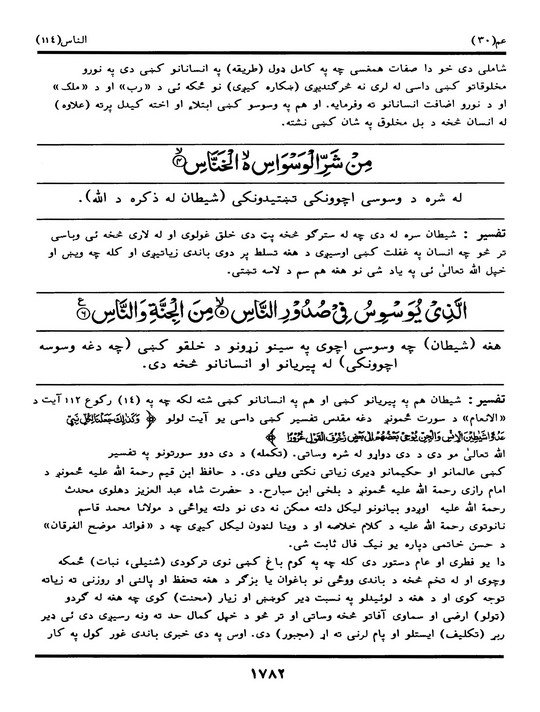 عم(٣٠) الناس(١١٤)
شاملی دی خو دا صفات همغسی چه په کامل ډول (طریقه) په انسانانو کښی دی په نورو
مخلوقاتو کښی داسی له لری نه څرګندیږی (ښکاره کیږی) نو ځکه ئی د «رب» او د «ملک»
او د نورو اضافت انسانانو ته وفرمایه. او هم په وسوسو کښی ابتلاء او اخته کیدل پرته (علاوه)
له انسان څخه د بل مخلوق په شان کښی نشته.
مِنْ شَرِّ الْوَسْوَاسِ ۙ الْخَنَّاسِ ﴿٤﴾
له شره د وسوسی اچوونکی تښتیدونکی (شیطان له ذکره د الله).
تفسیر : شیطان سره له دی چه له سترګو څخه پټ دی خلق غولوی او له لاری څخه ئی وباسی
تر څو چه انسان په غفلت کښی اوسیږی د هغه تسلط پر دوی باندی زیاتیږی او کله چه ویښ او
خپل الله تعالیٰ ئی په یاد شی نو هغه هم سم د لاسه تښتی.
الَّذِیْ یُوَسْوِسُ فِیْ صُدُوْرِ النَّاسِ ﴿٥﴾ مِنَ الْجِنَّةِ وَالنَّاسِ ﴿٦﴾
هغه (شیطان) چه وسوسی اچوی په سینو زړونو د خلقو کښی (چه دغه وسوسه
اچوونکی) له پیریانو او انسانانو څخه دی.
تفسیر : شیطان هم په پیریانو کښی او هم په انسانانو کښی شته لکه چه په (١٤) رکوع ١١٢ آیت د
«الانعام» د سورت څمونږ دغه مقدس تفسیر کښی داسی یو آیت لولو ﴿ وَكَذٰلِكَ جَعَلْنَا لِكُلِّ نَبِیٍّ
عَدُوًّا شَیٰطِیْنَ الْاِنْسِ وَالْجِنِّ یُوْحِیْ بَعْضُهُمْ اِلٰی بَعْضٍ زُخْرُفَ الْقَوْلِ غُرُوْرًا ﴾
الله تعالیٰ مو دی د دی دواړو له شره وساتی. (تکمله) د دی دوو سورتونو په تفسیر
کښی عالمانو او حکیمانو ډیری زیاتی نکتی ویلی دی. د حافظ ابن قیم رحمة الله علیه څمونږ د
امام رازی رحمة الله علیه څمونږ د بلخی ابن سبارح. د حضرت شاه عبد العزیز دهلوی محدث
رحمة الله علیه اوږدو بیانونو لیکل دلته ممکن نه دی نو دلته یواځی د مولانا محمد قاسم
نانوتوی رحمة الله علیه د کلام خلاصه او د وینا لنډون لیکل کیږی چه د «فوائد موضح الفرقان»
د حسن خاتمی دپاره یو نیک فال ثابت شی.
دا یو فطری او عام دستور دی کله چه په کوم باغ کښی نوی ترکودی (شنیلی، نبات) ځمکه
وچوی او له تخم څخه د باندی ووځی نو باغوان یا بزګر د هغه تحفظ او پالنی او روزنی ته زیاته
توجه کوی او د هغه د لوئیدلو په نسبت ډیر کوښښ او زیار (محنت) کوی چه هغه له ګردو
(تولو) ارضی او سماوی آفاتو څخه وساتی او تر څو د خپل کمال حد ته ونه رسیږی دی ئی ډیر
ربړ (تکلیف) ایستلو او پام لرنی ته اړ (مجبور) دی. اوس په دی خبری باندی غور کول په کار
١٧٨٢